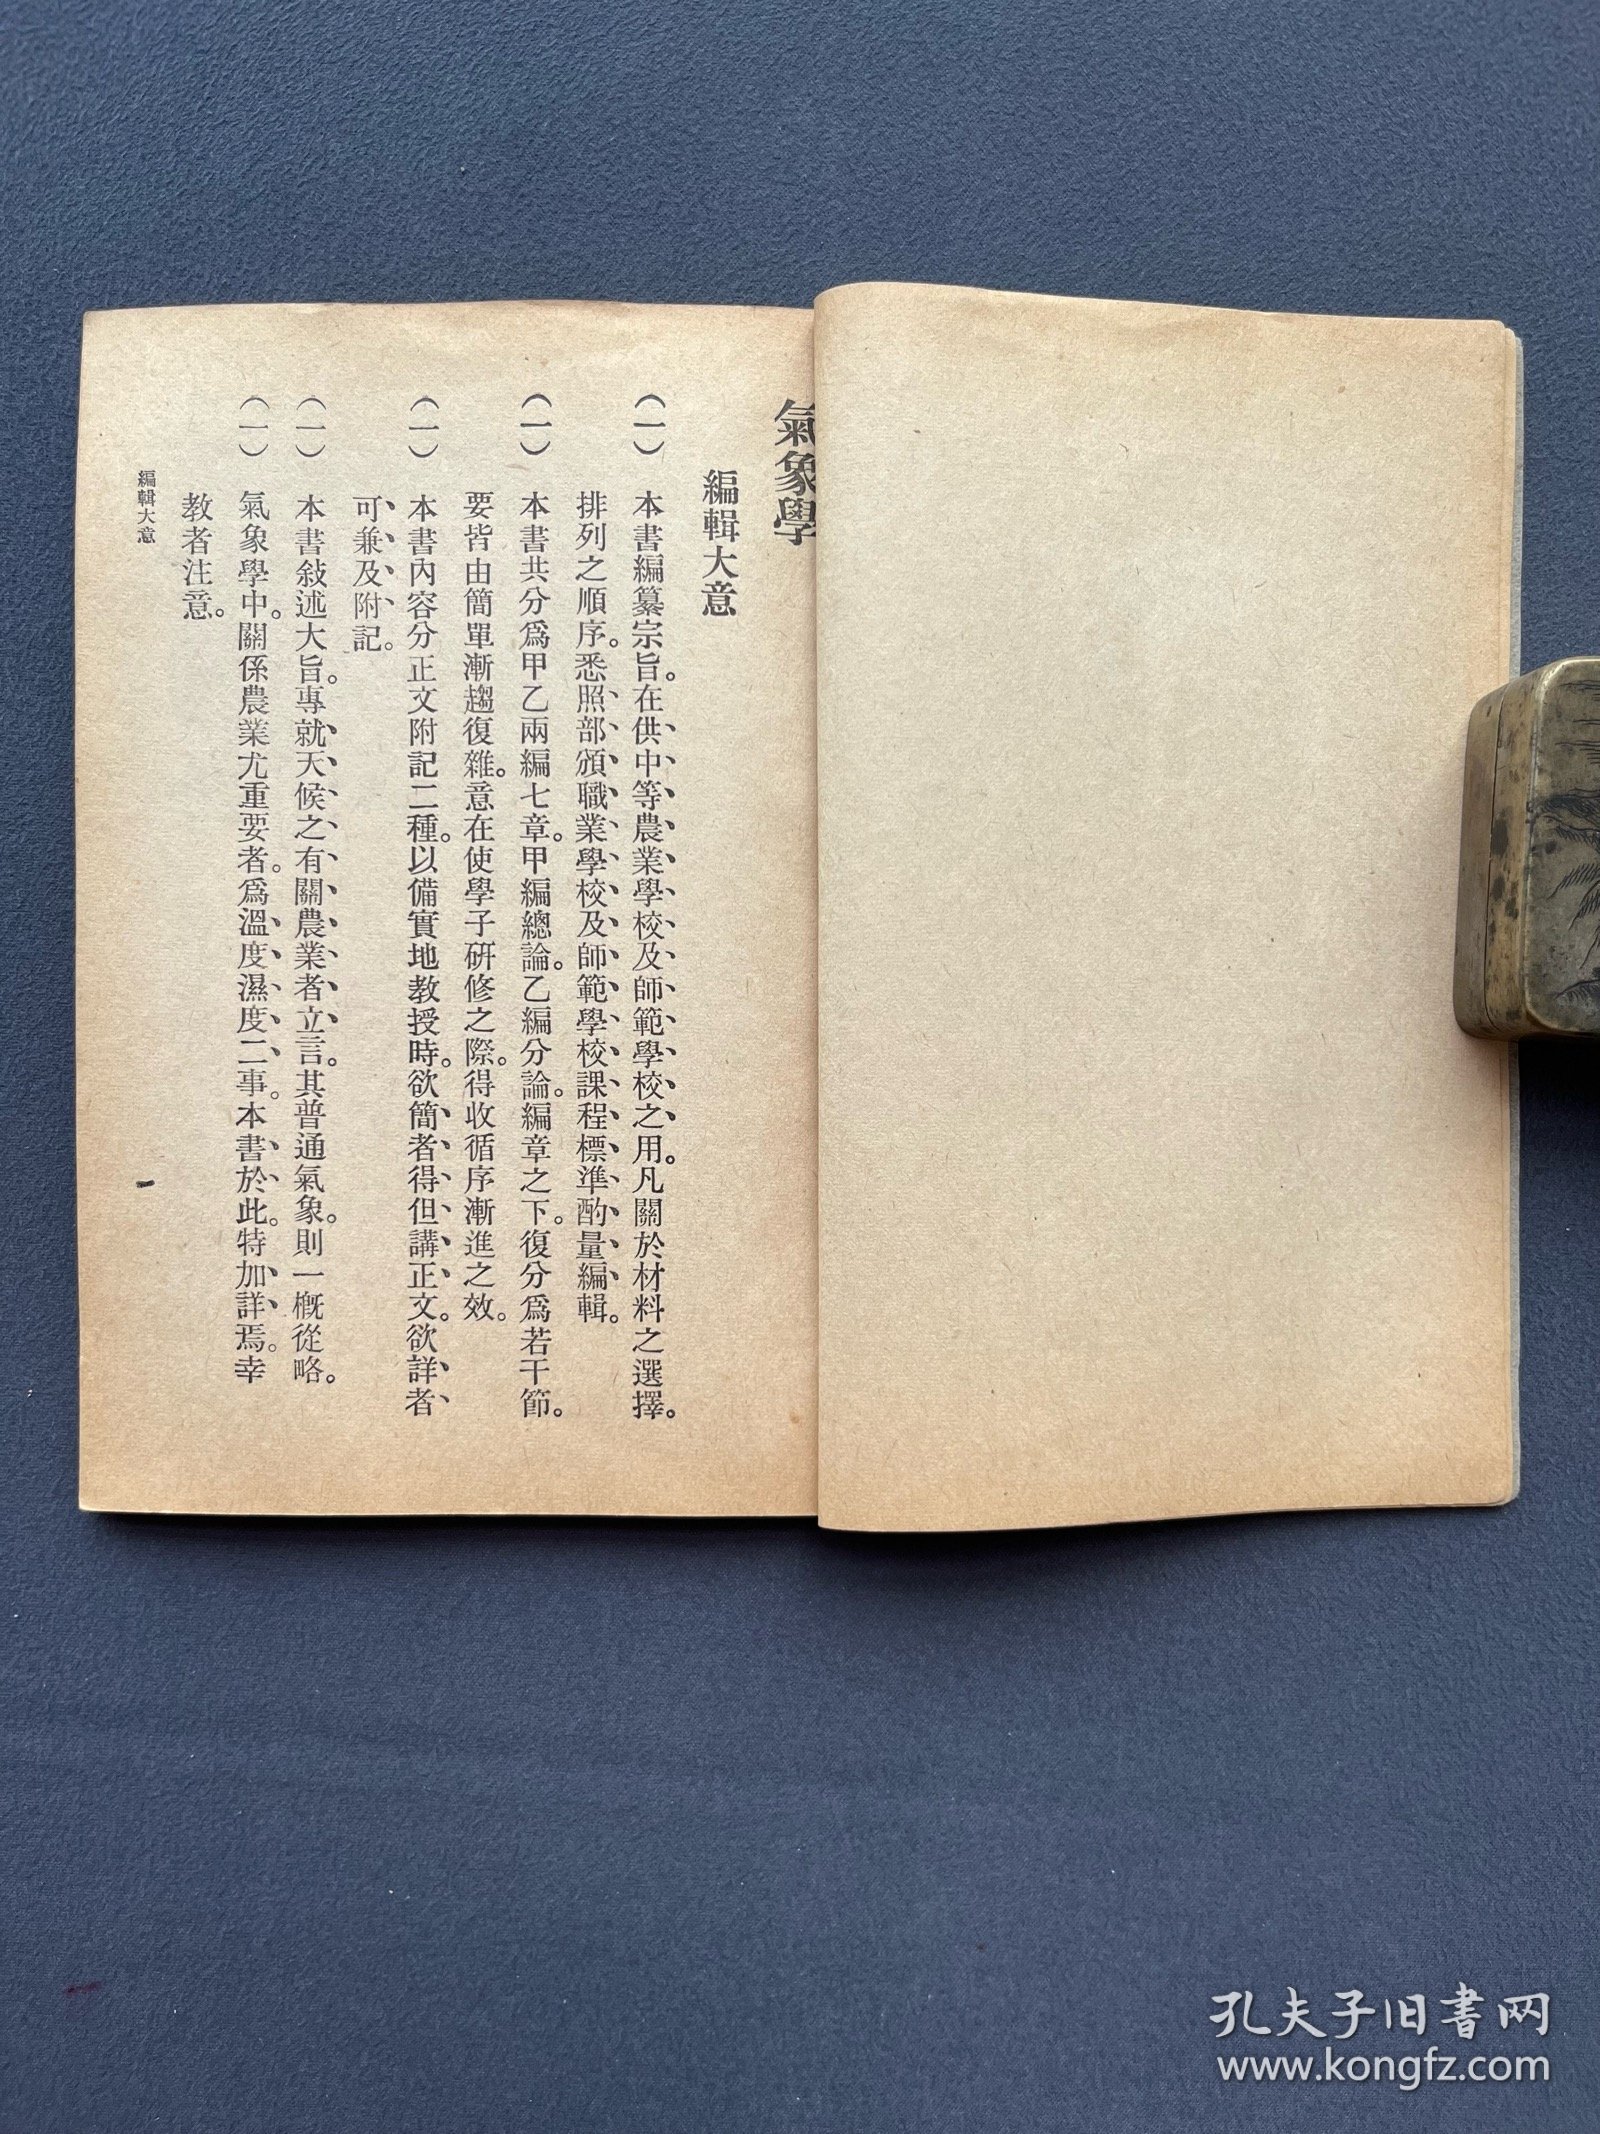 氣象學
編輯大意
(一) 本書編纂宗旨。在供中等農業學校及師範學校之用。凡關於材料之選擇。
排列之順序。悉照部頒職業學校及師範學校課程標準酌量編輯。
(一) 本書共分爲甲乙兩編七章。甲編總論。乙編分論。編章之下。復分爲若干節。
要皆由簡單漸趨復雜。意在使學子研修之際。得收循序漸進之效。
(一) 本書內容分正文附記二種。以備實地教授時。欲簡者得但講正文。欲詳者、
可兼及附記。
(一) 本書敍述大旨。專就天候之有關農業者立言。其普通氣象。則一概從略。
(一) 氣象學中。關係農業尤重要者。爲溫度濕度二事。本書於此。特加詳焉。幸
教者注意。
編輯大意
一
孔夫子旧书网
www.kongfz.com